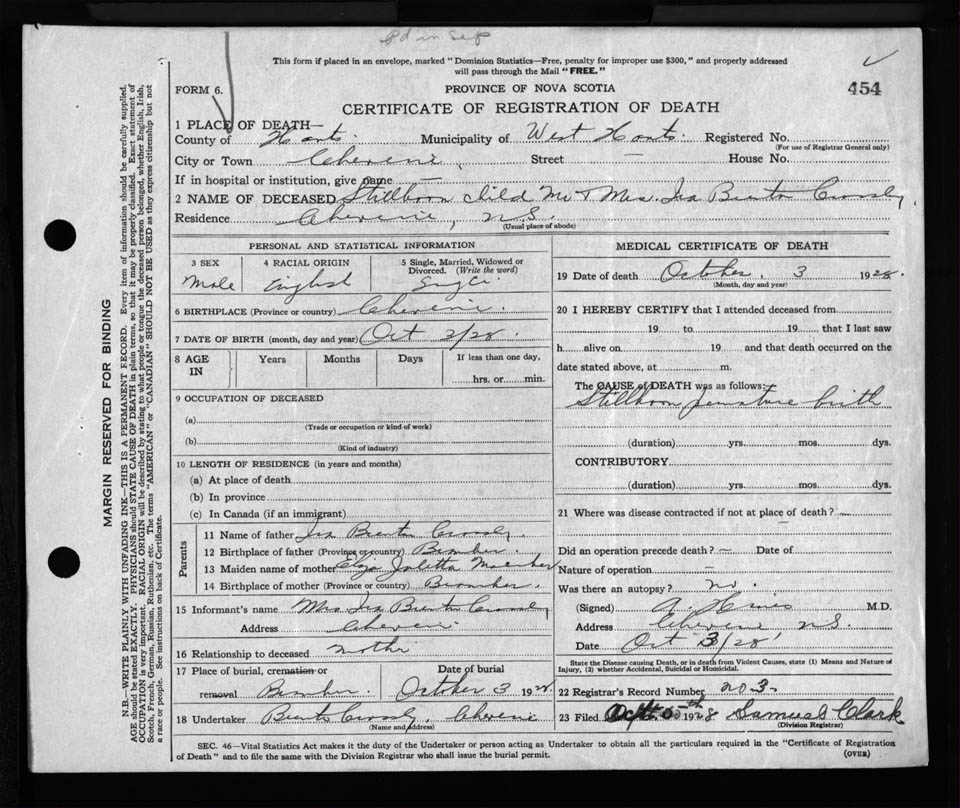 This form if placed in an envelope, marked "Dominion Statistics—Free, penalty for improper use $300," and properly addressed
will pass through the Mail "FREE."
FORM 6.
PROVINCE OF NOVA SCOTIA
454
CERTIFICATE OF REGISTRATION OF DEATH
1 PLACE OF DEATH—
County of Hants. Municipality of West Hants. Registered No.
(For use of Registrar General only)
City or Town Cheverie, Street — House No.
If in hospital or institution, give name —
2 NAME OF DECEASED Stillborn child Mr & Mrs. Ira Burton
Residence Cheverie, N.S.
(Usual place of abode)
PERSONAL AND STATISTICAL INFORMATION
3 SEX 4 RACIAL ORIGIN 5 Single, Married, Widowed or
Divorced. (Write the word)
Male English Single
6 BIRTHPLACE (Province or country) Cheverie
7 DATE OF BIRTH (month, day and year) Oct 3/28.
8 AGE Years Months Days If less than one day,
IN hrs. or min.
9 OCCUPATION OF DECEASED
(a)
(Trade or occupation or kind of work)
(b)
(Kind of industry)
10 LENGTH OF RESIDENCE (in years and months)
(a) At place of death
(b) In province
(c) In Canada (if an immigrant)
Parents
11 Name of father Ira Burton
12 Birthplace of father (Province or country)
13 Maiden name of mother
14 Birthplace of mother (Province or country)
15 Informant's name Mrs Ira Burton
Address Cheverie
16 Relationship to deceased Mother
17 Place of burial, cremation or Date of burial
removal October 3 1928
18 Undertaker Cheverie
(Name and address)
MEDICAL CERTIFICATE OF DEATH
19 Date of death October, 3 1928.
(Month, day and year)
20 I HEREBY CERTIFY that I attended deceased from
19 to 19 that I last saw
h alive on 19 and that death occurred on the
date stated above, at m.
The CAUSE of DEATH was as follows:—
Stillborn premature birth
(duration) yrs. mos. dys.
CONTRIBUTORY
(duration) yrs. mos. dys.
21 Where was disease contracted if not at place of death? —
Did an operation precede death? — Date of
Nature of operation —
Was there an autopsy? no.
(Signed) M.D.
Address Cheverie N.S.
Date Oct 3/28
State the Disease causing Death, or in death from Violent Causes, state (1) Means and Nature of
Injury, (2) whether Accidental, Suicidal or Homicidal.
22 Registrar's Record Number no 3.
23 Filed 1928 Samuel Clark
(Division Registrar)
SEC. 46—Vital Statistics Act makes it the duty of the Undertaker or person acting as Undertaker to obtain all the particulars required in the "Certificate of Registration
of Death" and to file the same with the Division Registrar who shall issue the burial permit.
(OVER)
MARGIN RESERVED FOR BINDING
N.B.—WRITE PLAINLY WITH UNFADING INK—THIS IS A PERMANENT RECORD. Every item of information should be carefully supplied.
AGE should be stated EXACTLY. PHYSICIANS should STATE CAUSE OF DEATH in plain terms, so that it may be properly classified. Exact statement of
OCCUPATION is very important. RACIAL ORIGIN will be described by stating to what people or tongue the deceased person belonged, whether English, Irish,
Scotch, French, German, Russian, Ruthenian, etc. The terms "AMERICAN" or "CANADIAN" SHOULD NOT BE USED as they express citizenship but not
a race or people. See instructions on back of Certificate.